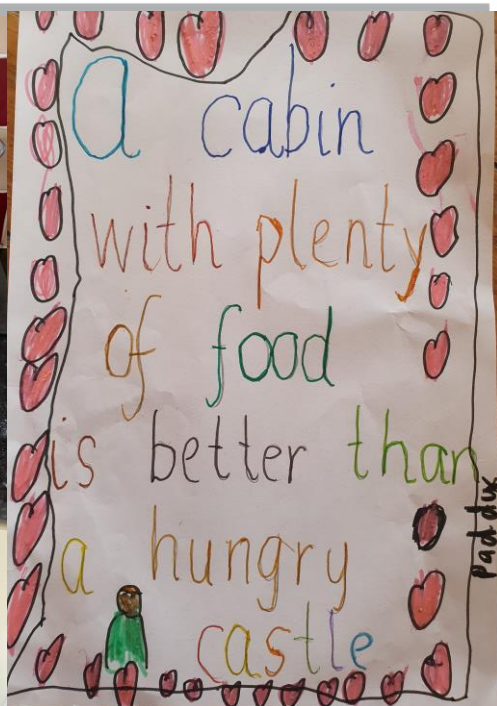 a cabin
with plenty
of food
is better than
a hungry
castle
Paddux